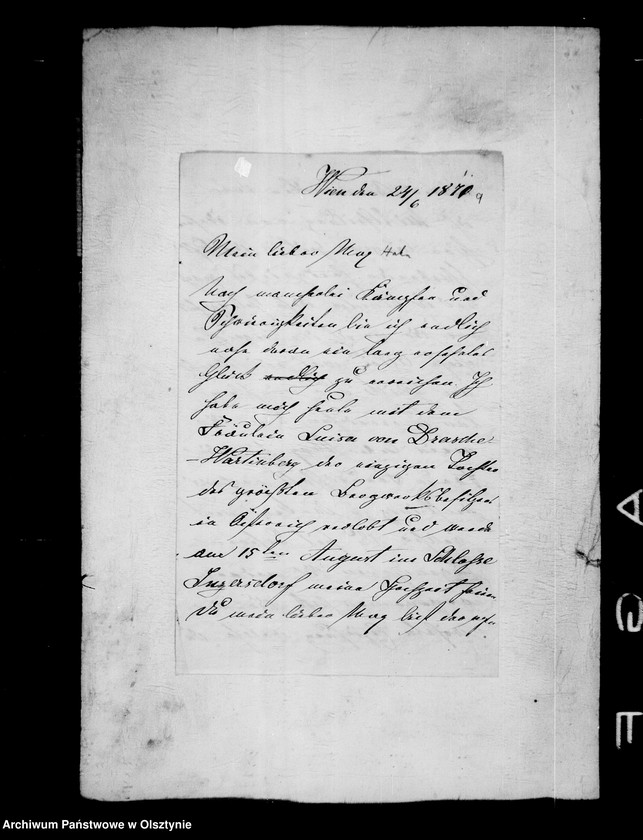 Wien den 24/6 1870
9
Mein lieber Max
Nach mancherlei Kämpfen und
Schwierigkeiten bin ich endlich
nahe daran ein lang ersehntes
Glück endlich zu erreichen Ich
habe mich heute mit dem
Fräulein Luise von Drasche
-Wartinberg der einzigen Tochter
des größten Bergwerksbesitzers
in Östreich verlobt und werde
am 15ten August im Schlosse
Inzersdorf meine Hochzeit feiern
Du mein lieber Max bist der
Archiwum Państwowe w Olsztynie